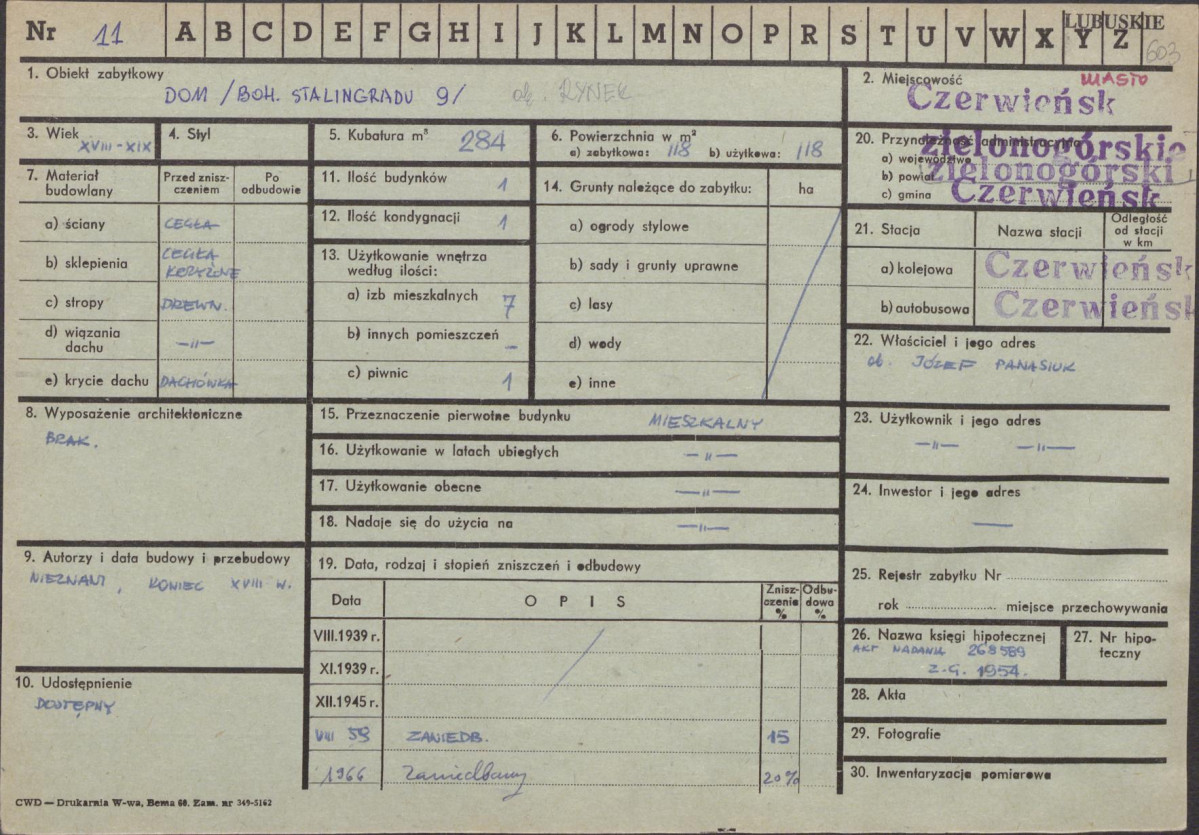 Nr 11 A B C D E F G H I J K L M N O P R S T U V W X Y Z LUBUSKIE
603
1. Obiekt zabytkowy
DOM /BOH. STALINGRADU 9/ ob. RYNEK
2. Miejscowość MIASTO
Czerwieńsk
3. Wiek XVIII-XIX
4. Styl
5. Kubatura m³ 284
6. Powierzchnia w m²
a) zabytkowa: 118 b) użytkowa: 118
20. Przynależność administracyjna
a) województwo zielonogórskie
b) powiat zielonogórski
c) gmina Czerwieńsk
7. Materiał budowlany
Przed znisz-
czeniem
Po
odbudowie
a) ściany CEGŁA
b) sklepienia CEGŁA
KRZYŻOWE
c) stropy DREWN.
d) wiązania
dachu —"—
e) krycie dachu DACHÓWKA
11. Ilość budynków 1
12. Ilość kondygnacji 1
13. Użytkowanie wnętrza
według ilości:
a) izb mieszkalnych 7
b) innych pomieszczeń –
c) piwnic 1
14. Grunty należące do zabytku: ha
a) ogrody stylowe
b) sady i grunty uprawne
c) lasy
d) wody
e) inne
21. Stacja Nazwa stacji
Odległość
od stacji
w km
a) kolejowa Czerwieńsk
b) autobusowa Czerwieńsk
22. Właściciel i jego adres
ob. JÓZEF PANASIUK
8. Wyposażenie architektoniczne
BRAK.
15. Przeznaczenie pierwotne budynku MIESZKALNY
16. Użytkowanie w latach ubiegłych —"—
17. Użytkowanie obecne —"—
18. Nadaje się do użycia na —"—
23. Użytkownik i jego adres
—"— —"—
24. Inwestor i jego adres
—
9. Autorzy i data budowy i przebudowy
NIEZNANI, KONIEC XVIII W.
10. Udostępnienie
DOSTĘPNY
19. Data, rodzaj i stopień zniszczeń i odbudowy
Data OPIS
Znisz-
czenie
%
Odbu-
dowa
%
VIII.1939 r.
XI.1939 r.
XII.1945 r.
VIII 59 ZANIEDB. 15
1966 Zaniedbany 20%
25. Rejestr zabytku Nr
rok miejsce przechowywania
26. Nazwa księgi hipotecznej
AKT NADANIA 268589
Z.G. 1954.
27. Nr hipo-
teczny
28. Akta
29. Fotografie
30. Inwentaryzacja pomiarowa
CWD — Drukarnia W-wa, Bema 60. Zam. nr 349-5162